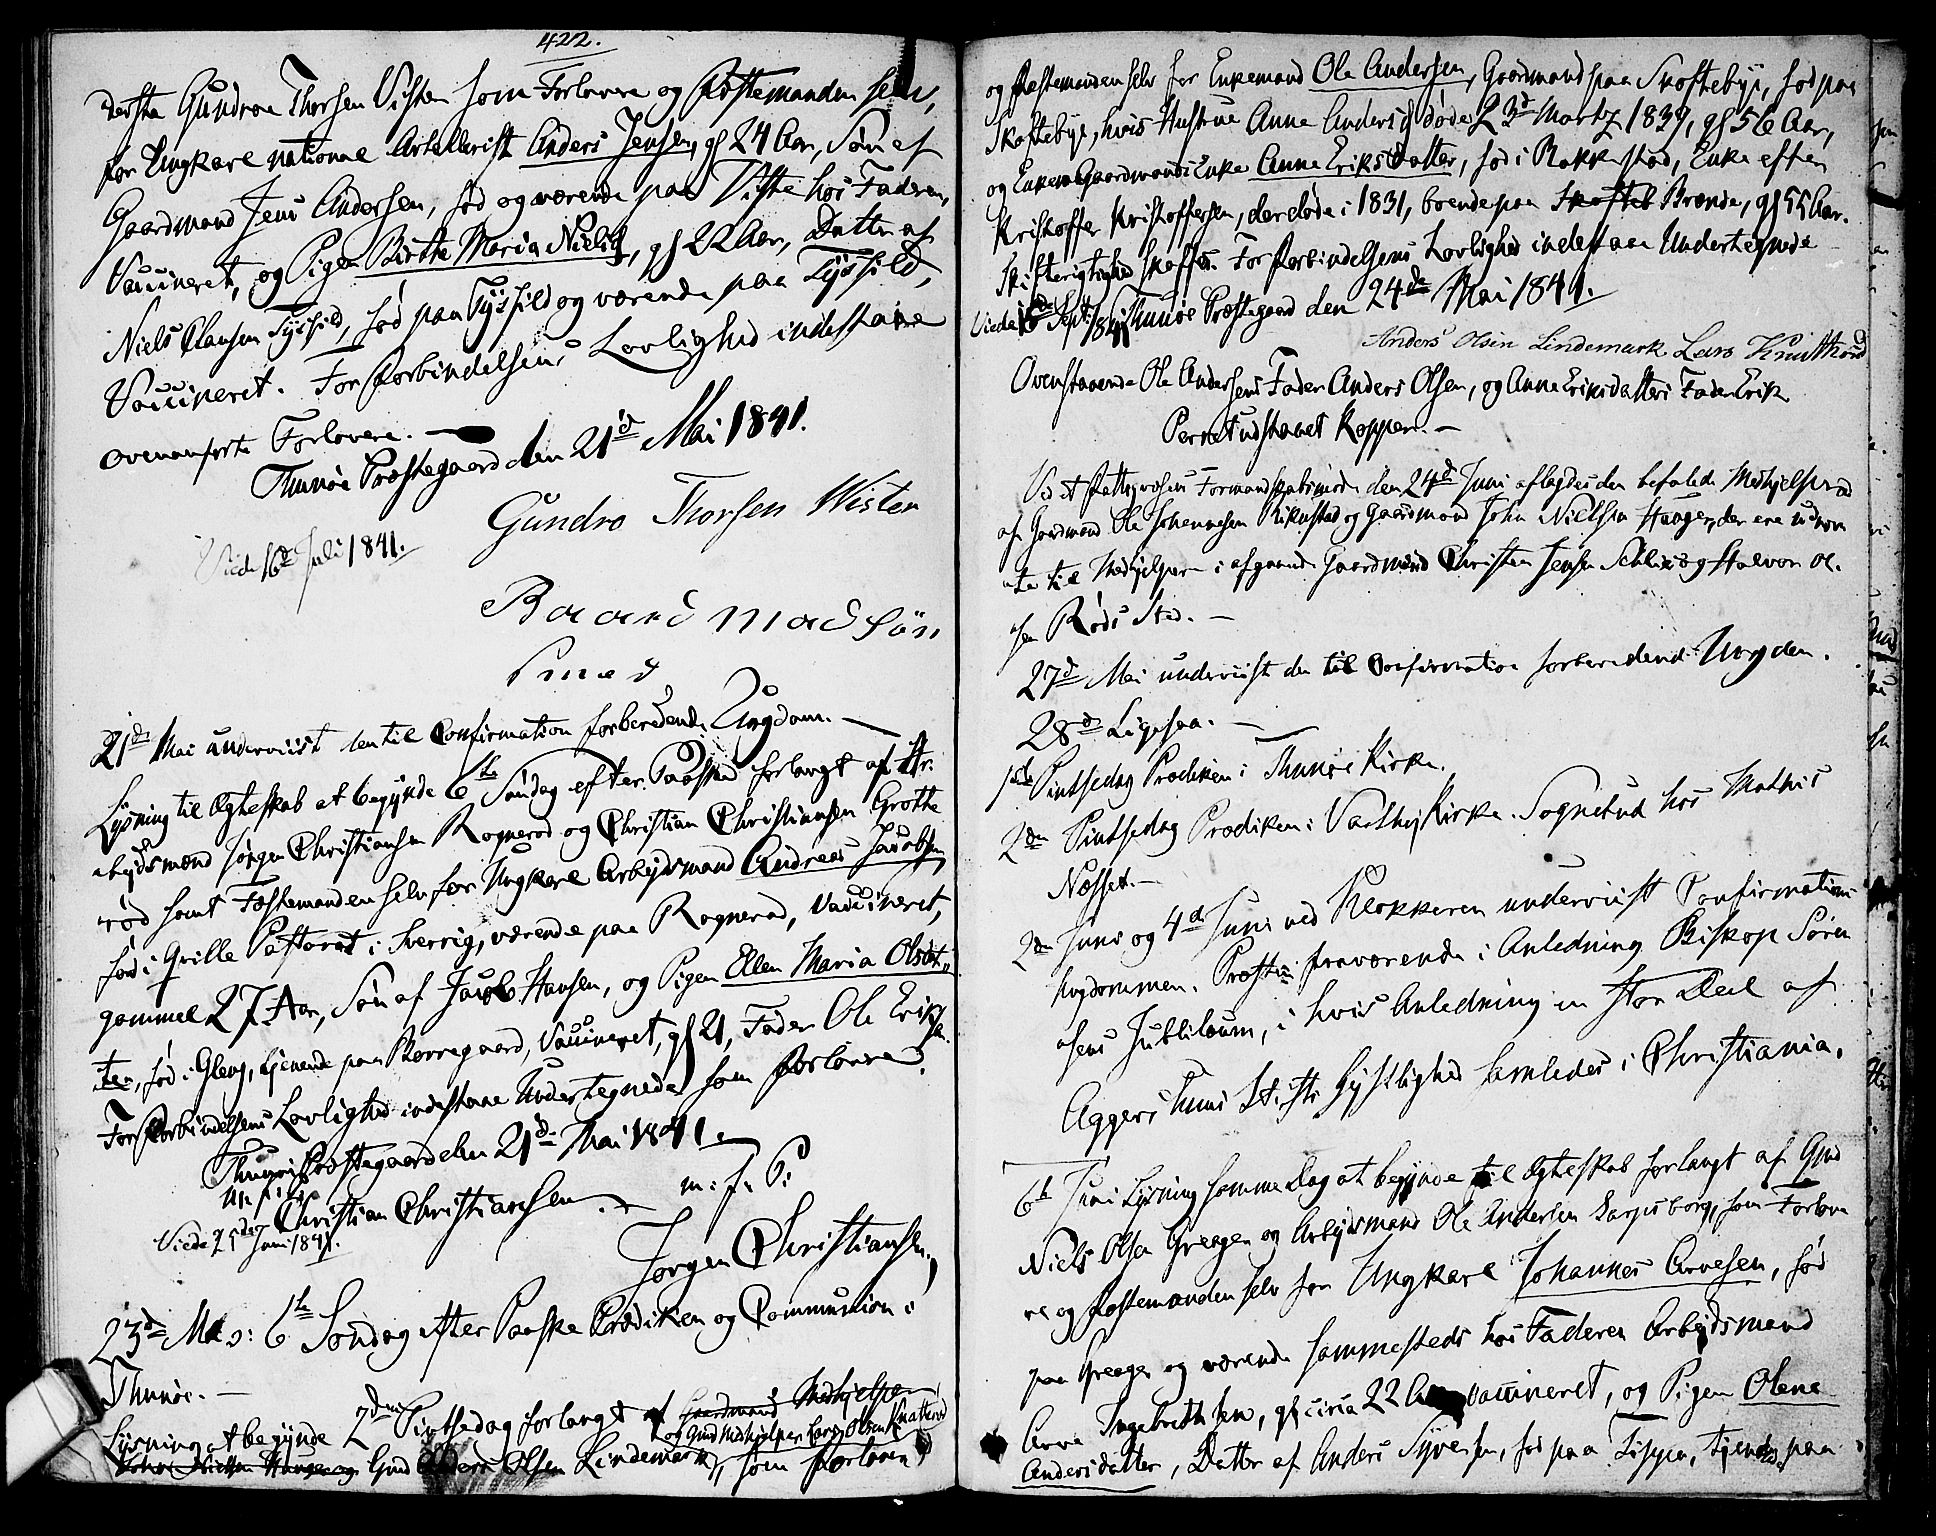 422.
Gundroe Thorsen Visten som Forlovere og Fæstemanden selv,
for Ungkarl nationne Artellerist Anders Jensen, gl 24 Aar, Søn af
Gaardmand Jens Andersen, fød og værende paa Viste hos Faderen,
Vaccineret, og Pigen Birthe Maria Nielsd, gl 22 Aar, Datter af
Niels Clausen Tysfild, fød paa Tysfild og værende paa Tysfild,
Vaccineret. For Forbindelsens Lovlighed indestaae
ovenanførte Forlovere. —
Thunøe Præstegaard den 21d Mai 1841.
Gundro Thorsen Wisten
Viede 16d Juli 1841.
Baard Madsøn
21de Mai underviist den til Confirmation forberedende Ungdom. —
Lysning til Ægteskab at begynde 6te Søndag efter Paaske forlangt af Ar-
beidsmænd Jørgen Christiansen Rognerød og Christian Christiansen Grotte
rød samt Fæstemanden selv for Ungkarl Arbejdsmand Andreas Jacobsen,
fød i Qville Pastorat i Sverrig, værende paa Rognerød, vaccineret,
gammel 27 Aar, Søn af Jacob Hansen, og Pigen Ellen Maria Olsdat-
ter, fød i Gleng, tjenende paa Borregaard, Vaccineret, gl 21, Fader Ole Eriksen.
For Forbindelsens Lovlighed indestaae Undertegnede som Forlovere.
Thunøe Præstegaard den 21d Mai 1841. —
m: f: P:
Christian Christiansen.
Viede 25de Juni 1841.
Jørgen Christiansen,
23d Mai: 6te Søndag efter Paaske Prædiken og Communion i
Thunøe. —
Lysning at begynde 2den Pintsedag forlangt af Gaardmand Medhjelper
og Gmd Medhjelper Lars Olsen Knatterød
John Nielsen Hauger og Gmd Anders Olsen Lindemark, som Forlovere
og Fæstemanden selv for Enkemand Ole Andersen, Gaardmand paa Skoftebye, fød paa
Skoftebye, hvis Hustrue Anne Andersd døde 23d Martz 1839, gl 56 Aar,
og Enken Gaardmands Enke Anne Eriksdatter, fød i Rakkestad, Enke efter
Kristoffer Kristoffersen, der døde i 1831, boende paa Skofteb Brende, gl 55 Aar.
Skifterigtighed skaffes. For Forbindelsens Lovlighed indestaae Undertegnede
Thunøe Præstegaard den 24de Mai 1841.
Anders Olsin Lindemark Lars Knatterød
Ovenstaaende Ole Andersens Fader Anders Olsen, og Anne Eriksdatters Fader Erik
Persen udstaaet Kopper. —
Ved et Formandskabsmøde den 24d Juni aflagdes den befalede Medhjelpered
af Gaardmand Ole Johannesen Kiknstad og Gaardmand John Nielsen Hauger, der ere udnævn
te til Medhjelpere i afgaaende Gaardmænd Christen Jensen og Halvor Ol-
sen Røds Sted. —
27d Mai underviist den til Confirmation forberedende Ungdom.
28d Ligesaa. —
1ste Pintsedag Prædiken i Thunøe Kirke.
2den Pintsedag Prædiken i Varteig Kirke. Sognebud hos Mathis
Næsset. —
2den Juni og 4d Juni ved Klokkeren underviist Confirmations-
Ungdommen. Præsten fraværende i Anledning Biskop Søren-
sens Jubilæum, i hvis Anledning en stor Deel af
Aggershuus Stifts Gejstlighed samledes i Christiania.
6te Juni Lysning samme Dag at begynde til Ægteskab forlangt af Gmd
Niels Olsen Greager og Arbejdsmand Ole Andersen Sarpsborg, som Forlove
re og Fæstemanden selv for Ungkarl Johannes Arvesen, fød
paa Greager og værende sammesteds hos Faderen Arbejdsmand
Arve Ingebrethsen, gl circa 22 Aar vaccineret, og Pigen Olene
Andersdatter, Datter af Anders Syversen, fød paa Tippen, tjenende paa